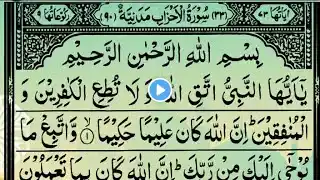 اٰیَاتُهَا ٧٣ (٣٣) سُوْرَةُ الْاَحْزَابِ مَدَنِیَّةٌ (٩٠) رُكُوْعَاتُهَا ٩
بِسْمِ اللّٰهِ الرَّحْمٰنِ الرَّحِیْمِ
یٰۤاَیُّهَا النَّبِیُّ اتَّقِ اللّٰهَ وَ لَا تُطِعِ الْكٰفِرِیْنَ وَ
الْمُنٰفِقِیْنَ ؕ اِنَّ اللّٰهَ كَانَ عَلِیْمًا حَكِیْمًا ۙ﴿١﴾ وَّاتَّبِعْ مَا
یُوْحٰۤی اِلَیْكَ مِنْ رَّبِّكَ ؕ اِنَّ اللّٰهَ كَانَ بِمَا تَعْمَلُوْنَ